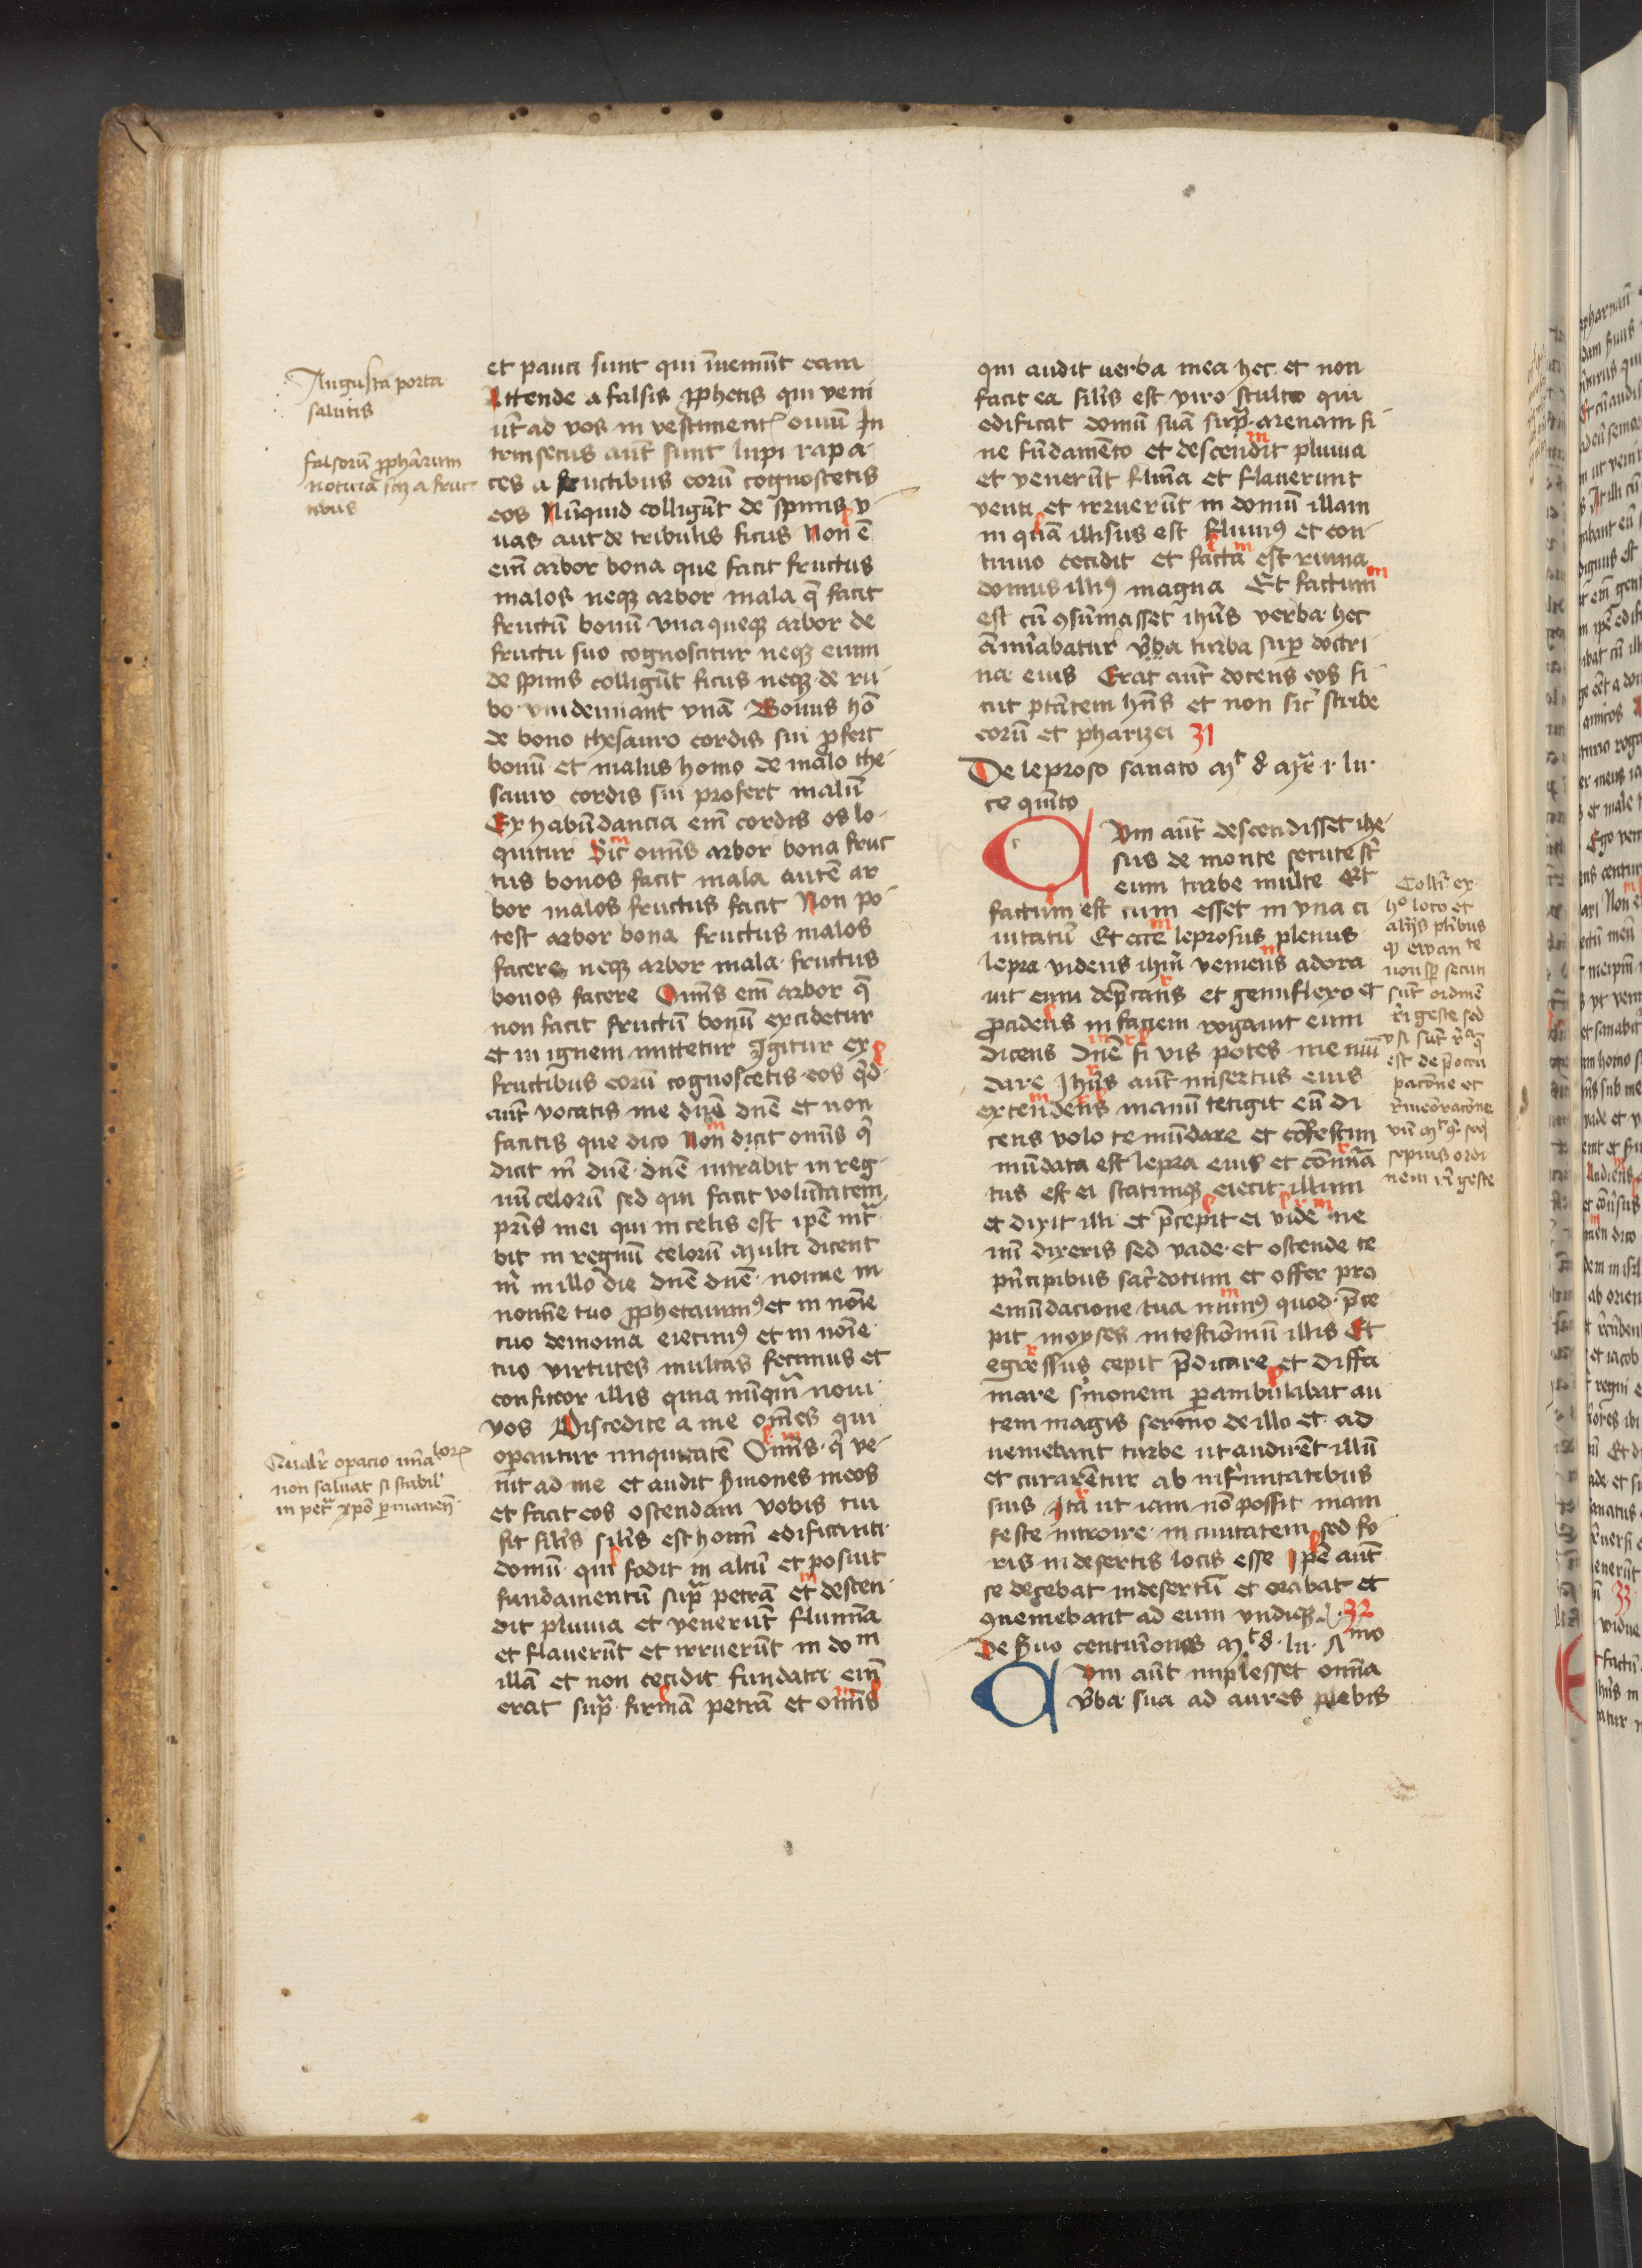 Angusta porta
salutis
falsorum prophetarum
noticia scilicet a fruc-
tibus
et pauci sunt qui inueniunt eam
Attende a falsis ꝓphetis qui veni
ūt ad vos in vestimentꝭ ouiū In
trinsecus aūt sunt lupi rapa-
ces a fructibus eorū cognoscetis
eos Nūquid colligūt de spinis v
uas aut de tribulis ficus Non ē
eīm arbor bona que facit fructus
malos neqꝫ arbor mala q̄ facit
fructū bonū vnaqueqꝫ arbor de
fructu suo cognoscitur neqꝫ enim
de spinis colligūt ficus neqꝫ de ru-
bo vindemiant vuā Bonus hō
de bono thesauro cordis sui ꝓfert
bonū et malus homo de malo the-
sauro cordis sui profert malū
Ex habūdancia eīm cordis os lo-
quitur Sic om̄is arbor bona fruc
tus bonos facit mala autē ar
bor malos fructus facit Non po-
test arbor bona fructus malos
facere neqꝫ arbor mala fructus
bonos facere Om̄is eīm arbor q̄
non facit fructū bonū excidetur
et in ignem mittetur Igitur ex
fructibus eorū cognoscetis eos q̇d
aūt vocatis me dn̄e dn̄e et non
facitis que dico Non dicit om̄is q̇
dicit m̄ dn̄e dn̄e intrabit in reg-
nū celorū sed qui facit volūtatem
pr̄is mei qui in celis est ip̄e int̄
bit in regnū celorū Multi dicent
m̄ in illo die dn̄e dn̄e nonne in
nomīe tuo ꝓphetauimꝰ et in noīe
tuo demonia eiecimꝰ et in noīe
tuo virtutes multas fecimus et
confiteor illis quia nūq̄m noui
vos Discedite a me om̄es qui
oꝑantur iniquitatē Om̄is q̇ ve-
nit ad me et audit ẜmones meos
et facit eos ostendam vobis cui
sit sil̄is sil̄is est homī edificanti
domū qui fodit in altū et posuit
fundamentū supra petrā et descen-
dit pluuia et venerūt flumīa
et flauerūt et irruerūt in dom
illā et non cecidit fundata eīm
erat supra firmā petrā et om̄is
Qualiter operacio
non saluat si stabil
in petra xpo permanen
qui audit uerba mea hec et non
facit ea sil̄is est viro stulto qui
edificat domū suā supra arenam si-
ne fūdamēto et descendit pluuia
et venerūt flumīa et flauerunt
venti et irruerūt in domū illam
in q̄ā illisus est fluuiꝰ et con-
tinuo cecidit et facta est ruina
domus illiꝰ magna Et factum
est cū ꝯsūmasset ih̄us verba hec
āmirabatur turba suꝑ doctri-
na eius Erat aūt docens eos si-
cut pt̄atem hn̄s et non sic̄ scribe
eorū et pharizei 31
De leproso sanato Mt 8 Mr̄ 1 lu
ce quīto
Cum aūt descendisset ihe-
sus de monte secute sūt
eum turbe multe Et
factum est cum esset in vna ci
uitatū Et ecce leprosus plenus
lepra videns ih̄m veniens adora
uit eum dep̄cans et genuflexo et
ꝓcidens in faciem rogauit eum
dicens Dn̄e si vis potes me mū
dare Ih̄us aūt misertus eius
extendens manū tetigit eū di
cens volo te mūdare et cōfestim
mūdata est lepra eius et cōmīa
tus est ei statimqꝫ eiecit illum
et dixit illi et p̄cepit ei vide ne
mī dixeris sed vade et ostende te
pn̄cipibus sac̄dotum et offer pro
emūdacione tua munꝰ quod p̄ce
pit moyses in testimoniū illis Et
egressus cepit p̄dicare et diffa
mare ẜmonem ꝑambulabat au
tem magis sermo de illo et ad
ueniebant turbe ut audirēt illū
et curarētur ab infirmitatibus
suis Ita ut iam nō possit mani
feste introire in ciuitatem sed fo
ris in desertis locis esse Ip̄e aūt
secedebat in desertū et orabat et
ꝯueniebant ad eum vndiqꝫ 32
De ẜuo centurionis Mt 8 lu 7mo
Cum aūt implesset omnia
v̄ba sua ad aures plebis
Colli ex
hoc loco et
alijs pluribus
quod ewan te
non semper secuti
sunt ordinē
rei geste sed
est de
pacione et
rememoracione
sepius ordi
nem rei geste